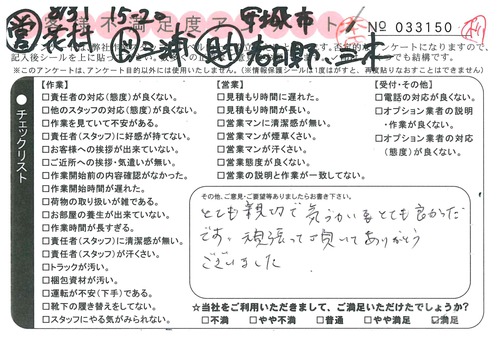 8/31 15-20 安城市
お客様不満足度アンケート
№ 033150
記入後シールを上に貼ってい
でも結構です。
※このアンケートは、アンケート目的以外には使用いたしません。(※情報保護シールは1度はがすと、再度貼りなおすことはできません)
チェックリスト
【作業】
□責任者の対応(態度)が良くない。
□他のスタッフの対応(態度)が良くない。
□作業を見ていて不安がある。
□責任者(スタッフ)に好感が持てない。
□お客様への挨拶が出来ていない。
□ご近所への挨拶・気遣いが無い。
□作業開始前の内容確認がなかった。
□作業開始時間が遅れた。
□荷物の取り扱いが雑である。
□お部屋の養生が出来ていない。
□作業時間が長すぎる。
□責任者(スタッフ)に清潔感が無い。
□責任者(スタッフ)が汗くさい。
□トラックが汚い。
□梱包資材が汚い。
□運転が不安(下手)である。
□靴下の履き替えをしてない。
□スタッフにやる気がみられない。
【営業】
□見積もり時間に遅れた。
□見積もり時間が長い。
□営業マンに清潔感が無い。
□営業マンが煙草くさい。
□営業マンが汗くさい。
□営業態度が良くない。
□営業の説明と作業が一致してない。
【受付・その他】
□電話の対応が良くない。
□オプション業者の説明
・作業が良くない。
□オプション業者の対応
(態度)が良くない。
その他、ご意見・ご要望等ありましたらお書き下さい。
とても親切で気づかいもとても良かった
です。頑張って頂いてありがとう
ございました
☆当社をご利用いただきまして、ご満足いただけたでしょうか?
□不満 □やや不満 □普通 □やや満足 ☑満足